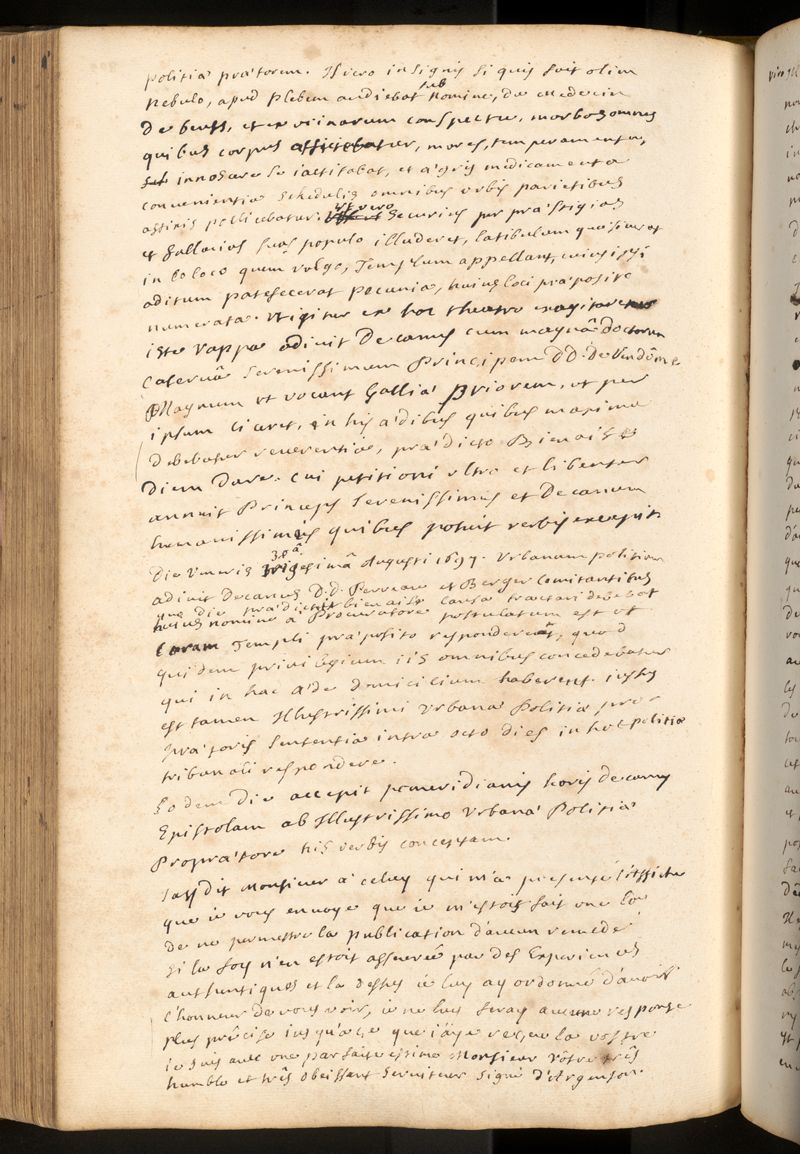 politiæ prætorem. Hic vero insignis si quis fuit olim
Nebulo, apud Plebem audiebat sub Nomine, de Medecin
De bœufs, et ex urinarum conspectu, morbos omnes
quibus corpus afficiebatur, mores, temperamentum,
innoscere se iactitabat, et ægris medicamenta
convenientia schedulis omnibus urbis parietibus
affixis pollicebatur. Ut vero securius per præstigias
et fallacias suas populo illuderet, latibulum quæsiverat
in eo loco quem vulgo, Templum appellant, cuius ipsi
aditum patefecerat pecunia, huius loci præposito
numerata. Ut igitur ex hoc theatro exagitaretur
iste vappa adiuit Decanus cum magnâ doctorum
catervâ serenissimum Principem DD. de Vendôme
Magnum ut vocant Galliæ Priorem, ut per
ipsum liceret, in his ædibus quibus maxima
debebatur reverentia, prædicto Bienaise
Diem Dare. Cui petitioni ultro et libenter
annuit Princeps serenissimus et Decanum
humanissimis quibus potuit verbis excepit.
Die Veneris 30.â trigesimâ Augusti 1697. Urbanam politiam
adiuit Decanus D.D. Perreau et Berger comitantibus
quâ die prædicti bienaise causa tractari debebat
huius nomine a Procuratore postulatum est ut
Coram Templi præposito responderet, quod
quidem privilegium iis omnibus concedebatur
qui in hac æde domicilium haberent. iussus
est tamen Illustrissimi Urbanæ Politiæ pro-
prætoris sententia intra octo dies in hoc politiæ
tribunali respondere.
Eodem die accepit pomeridianis horis decanus
Epistolam ab Illustrissimo Urbanæ Politiæ
Proprætore his verbis conceptam.
Jay dit Monsieur a celuy qui m'a presenté l'affiche
que ie vous envoye que ie m'estois fait une loy
de ne permettre la publication d'aucun remede
si la foy n'en estoit asseurée par des Experiences
authentiques et la dessus ie luy ay ordonné d'avoir
l'honneur de vous voir, ie ne luy feray aucune responce
plus précise iusqu'a ce que i'aye receu la vostre
ie suis avec une parfaite estime Monsieur vôtre très
humble et très obeissant serviteur signé d'Argenson.